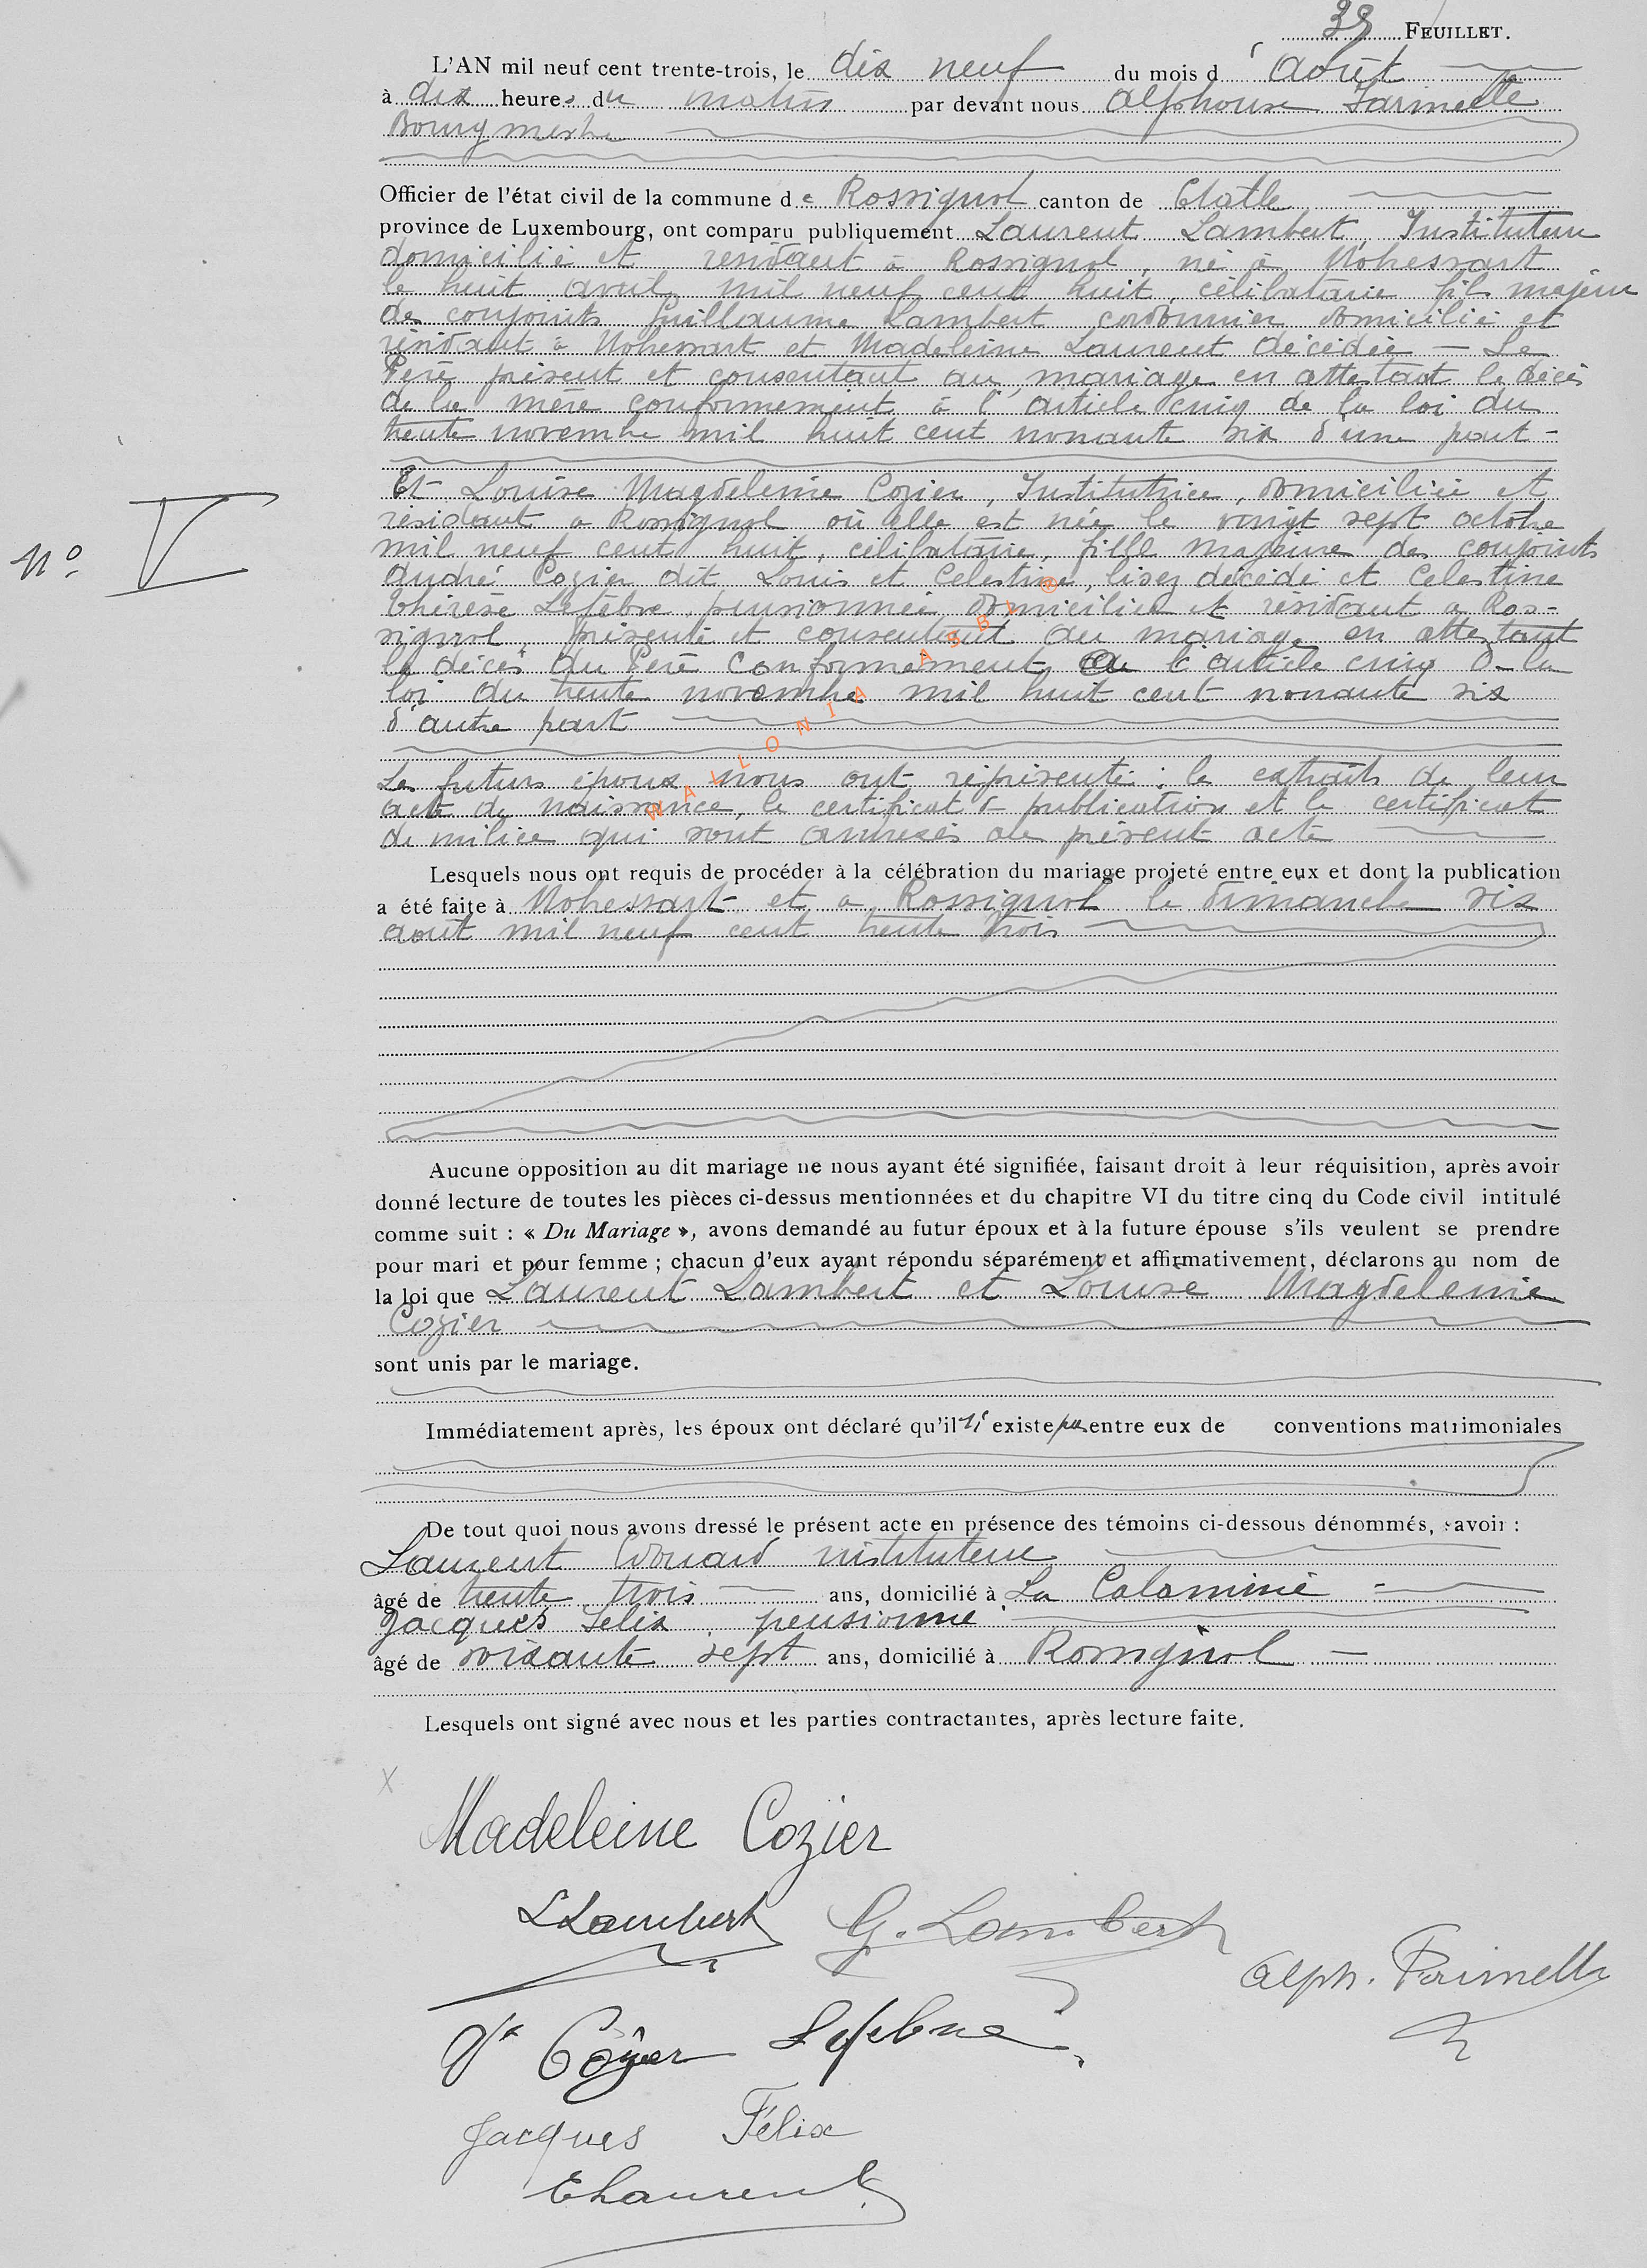 39 FEUILLET.
L'AN mil neuf cent trente-trois, le dix neuf du mois d' Août
à dix heures du matin par devant nous Alphonse Parmelle
Bourgmestre
Officier de l'état civil de la commune de Rossignol canton de Etalle
province de Luxembourg, ont comparu publiquement Laurent Lambert, Instituteur
domicilié et résidant à Rossignol, né à Nohessart
le huit avril mil neuf cent huit, célibataire fils majeur
des conjoints Guillaume Lambert cordonnier domicilié et
résidant à Nohessart et Madeleine Laurent décédée — Le
Père présent et consentant au mariage en attestant le décès
de la mère conformément à l'article cinq de la loi du
trente novembre mil huit cent nonante six d'une part -
N° V
Et Louise Magdeleine Cozier, Institutrice, domiciliée et
résidant a Rossignol où elle est née le vingt sept octobre
mil neuf cent huit, célibataire, fille majeure des conjoints
André Cozier dit Louis et Celestine, lisez décédé et Celestine
Thérèse Lefèbre, pensionnée domiciliée et résidant a Ros-
signol, présente et consentant au mariage en attestant
le décès du Père Conformément à l'article cinq de la
loi du trente novembre mil huit cent nonante six
d'autre part
WALLONIA ASBL ®
Les futurs époux nous ont représenté : le extraits de leur
acte de naissance, le certificat de publication et le certificat
de milice qui sont annexés au présent acte
Lesquels nous ont requis de procéder à la célébration du mariage projeté entre eux et dont la publication
a été faite à Nohessart et a Rossignol le dimanche six
août mil neuf cent trente trois
Aucune opposition au dit mariage ne nous ayant été signifiée, faisant droit à leur réquisition, après avoir
donné lecture de toutes les pièces ci-dessus mentionnées et du chapitre VI du titre cinq du Code civil intitulé
comme suit : « Du Mariage », avons demandé au futur époux et à la future épouse s'ils veulent se prendre
pour mari et pour femme ; chacun d'eux ayant répondu séparément et affirmativement, déclarons au nom de
la loi que Laurent Lambert et Louise Magdeleine
Cozier
sont unis par le mariage.
Immédiatement après, les époux ont déclaré qu'il n' existe pas entre eux de conventions matrimoniales
De tout quoi nous avons dressé le présent acte en présence des témoins ci-dessous dénommés, savoir :
Laurent Edouard instituteur
âgé de trente trois ans, domicilié à La Calamine
Jacques Felix pensionné
âgé de soixante sept ans, domicilié à Rossignol
Lesquels ont signé avec nous et les parties contractantes, après lecture faite.
Madeleine Cozier
L Lambert G. Lambert
Alph. Parmelle
Ve Cozier Lefebvre
Jacques Félix
E Laurent